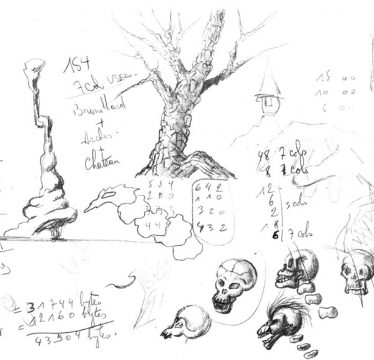 184
7 Cols
Brouillard
+
+
Chateau
15 00
10 00
6 00
48 7 cols
8 7 cols
12
6
2
3 cols
18
6 7 cols
554
200
44
642
110
320
432
= 31744 bytes
= 12160 bytes
43904 bytes.